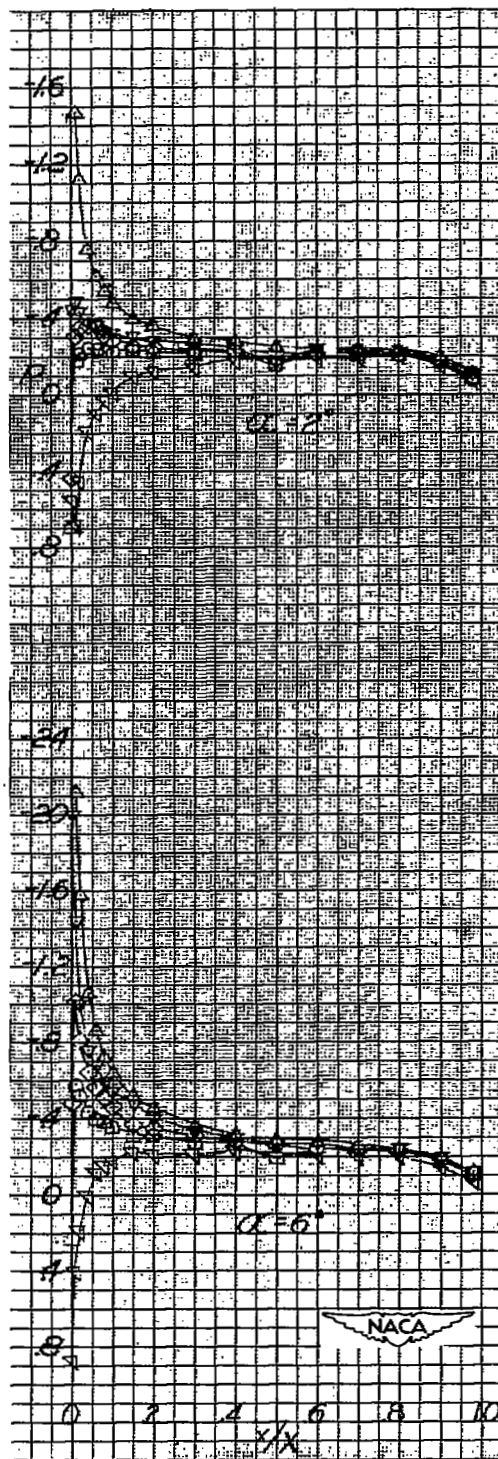 -1.6
-1.2
-.8
-.4
P
0
α = 2°
.4
.8
-2.4
-2.0
-1.6
-1.2
-.8
-.4
0
α = 6°
.4
NACA
.8
0 .2 .4 .6 .8 1.0
x/X